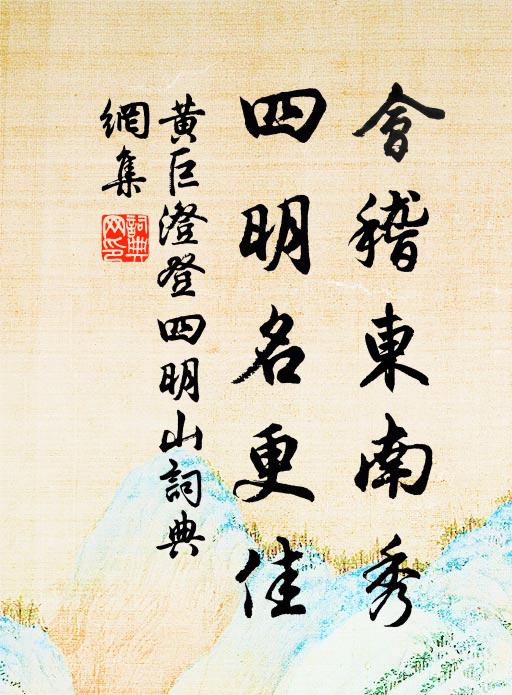 會稽東南秀
四明名更佳
黄巨澄登四明山詞典
網集
詞典
网印